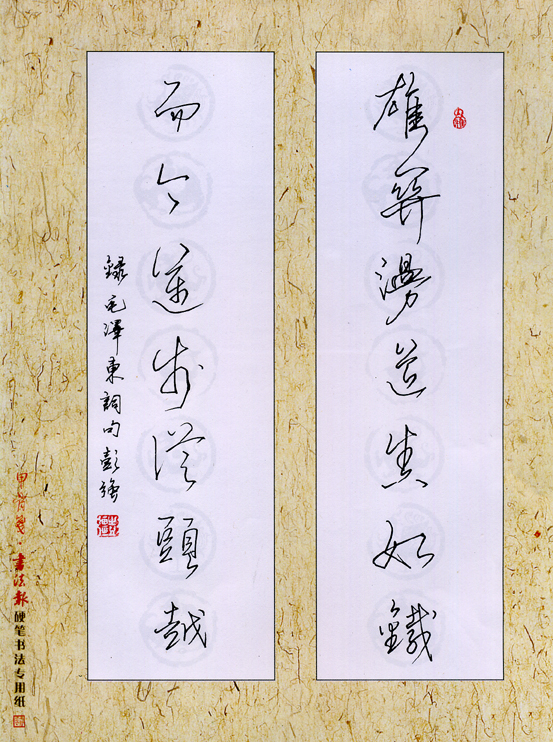 雄關漫道真如鐵
而今邁步從頭越
錄毛澤東詞句彭強
甲骨箋·書法報硬笔书法专用纸